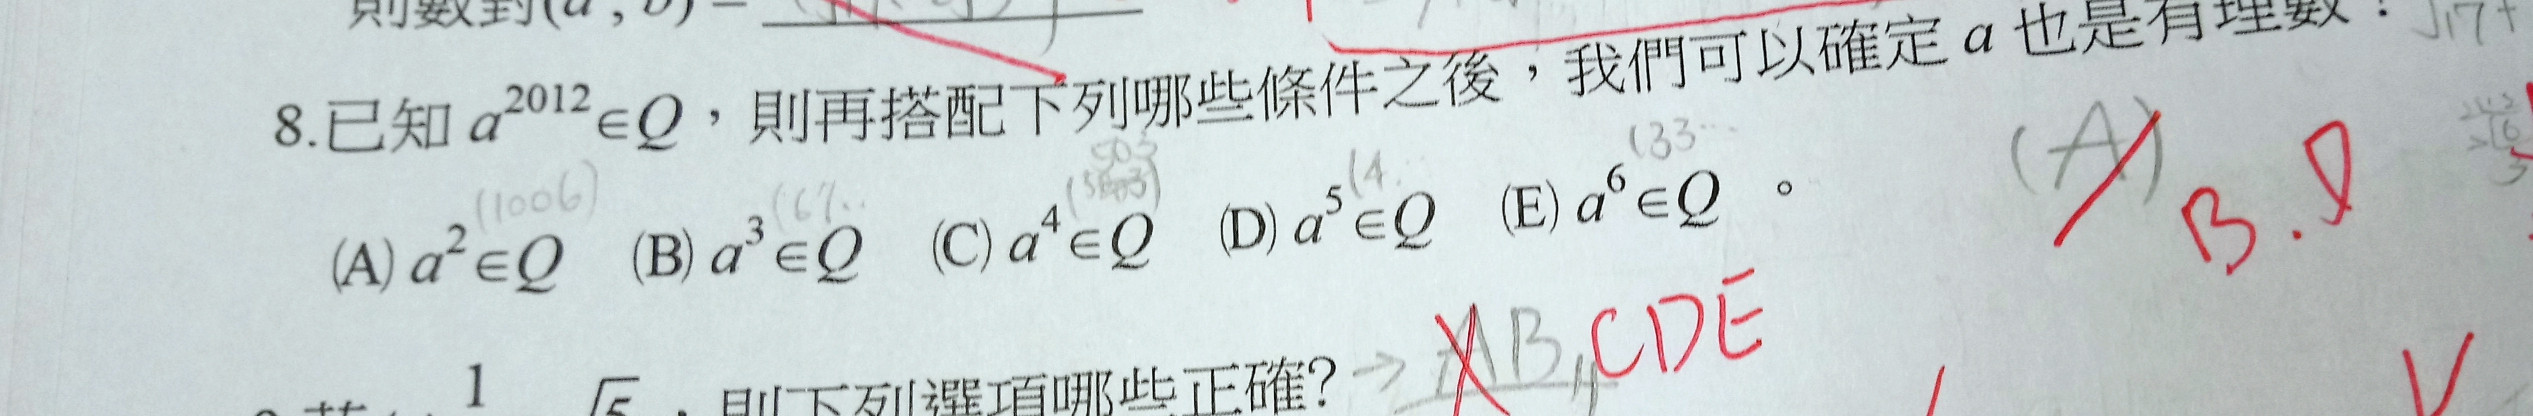 則數對(a , b) =
8.已知 a^2012∈Q，則再搭配下列哪些條件之後，我們可以確定 a 也是有理數？ √17+
(1006) (67.. 503 (4. (33...
(A) a^2∈Q (B) a^3∈Q (C) a^4∈Q (D) a^5∈Q (E) a^6∈Q 。 (A) B.D
1 √5，則下列選項哪些正確? → AB, CDE